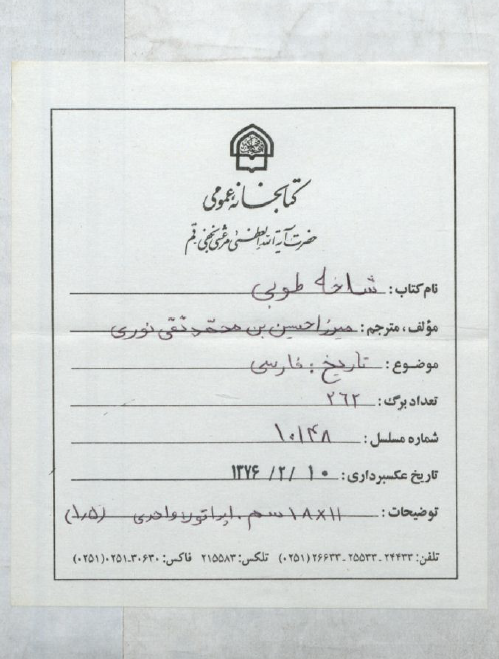 کتابخانه عمومی
حضرت آیة الله العظمی مرعشی نجفی قم
نام کتاب: شاخه طوبی
مؤلف، مترجم: میرزا حسین بن محمد تقی نوری
موضوع: تاریخ: فارسی
تعداد برگ: ۲۶۲
شماره مسلسل: ۱۰۱۴۸
تاریخ عکسبرداری: ۱۰ /۲/ ۱۳۷۶
توضیحات: ۱۸×۱۱ سم. اپراتور: واحدی (۱٫۵)
تلفن: ۲۴۴۳۳ - ۲۵۵۳۳ - ۲۶۶۳۳ (۰۲۵۱) تلکس: ۲۱۵۵۸۳ فاکس: ۳۰۶۳۰-۰۲۵۱ (۰۲۵۱)